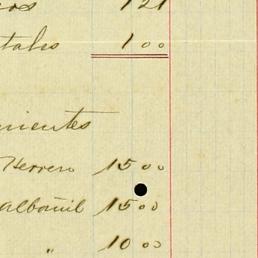 os 121
tales 1 00
rientes
Herrero 15 00
albañil 15 00
" 10 00